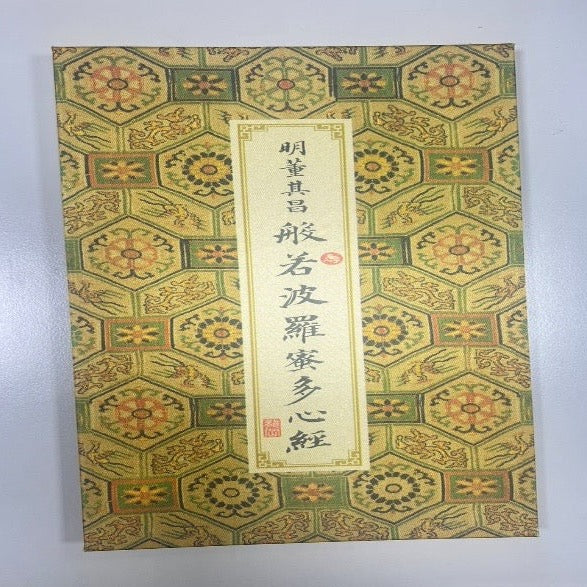 明董其昌般若波羅蜜多心經